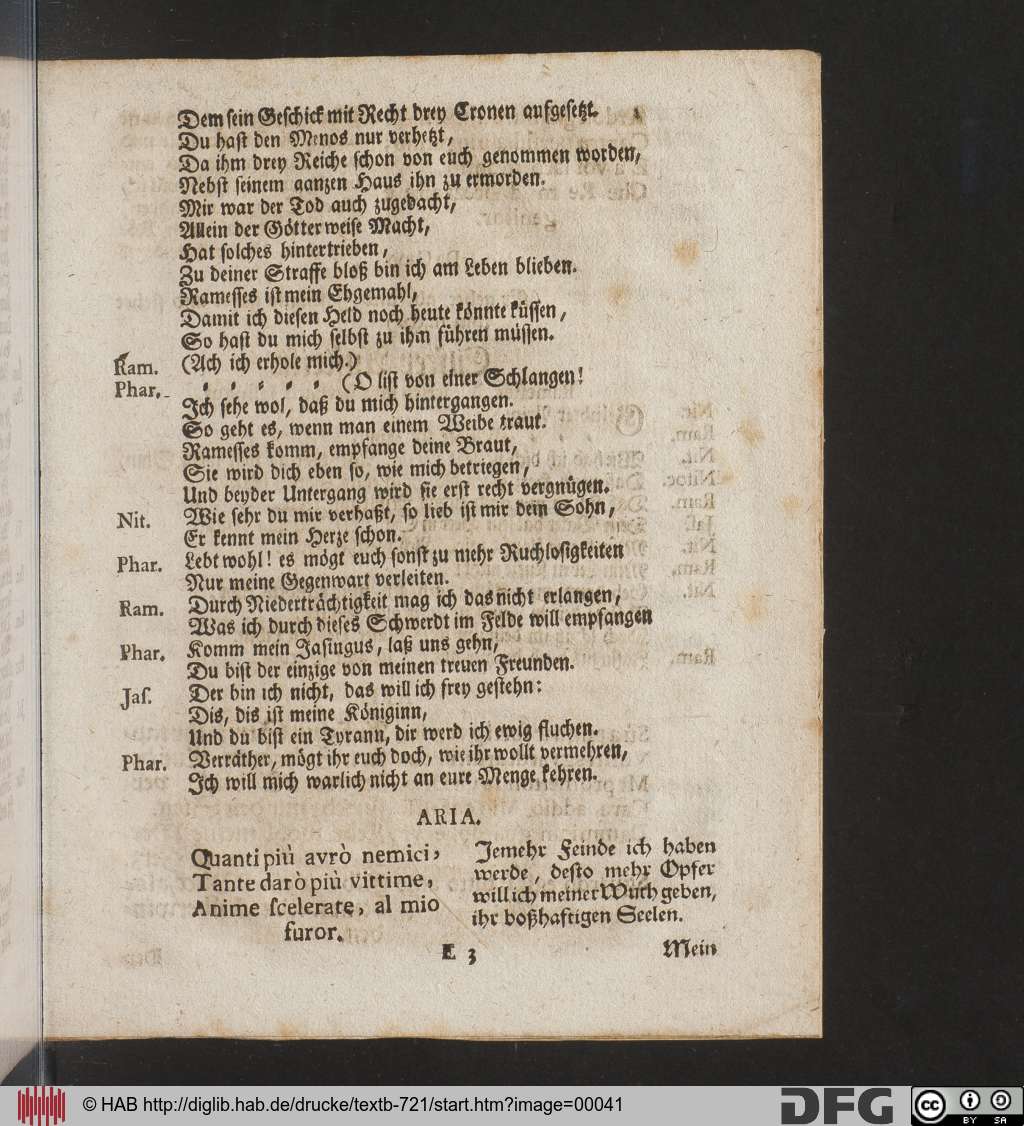 Dem sein Geschick mit Recht drey Cronen aufgesetzt.
Du hast den Menos nur verhetzt,
Da ihm drey Reiche schon von euch genommen worden,
Nebst seinem ganzen Haus ihn zu ermorden.
Mir war der Tod auch zugedacht,
Allein der Götter weise Macht,
Hat solches hintertrieben,
Zu deiner Straffe bloß bin ich am Leben blieben.
Ramesses ist mein Ehgemahl,
Damit ich diesen Held noch heute könnte küssen,
So hast du mich selbst zu ihm führen müssen.
Ram. (Ach ich erhole mich.)
Phar. (O list von einer Schlangen!
Ich sehe wol, daß du mich hintergangen.
So geht es, wenn man einem Weibe traut.
Ramesses komm, empfange deine Braut,
Sie wird dich eben so, wie mich betriegen,
Und beyder Untergang wird sie erst recht vergnügen.
Nit. Wie sehr du mir verhaßt, so lieb ist mir dein Sohn,
Er kennt mein Herze schon.
Phar. Lebt wohl! es mögt euch sonst zu mehr Ruchlosigkeiten
Nur meine Gegenwart verleiten.
Ram. Durch Niederträchtigkeit mag ich das nicht erlangen,
Was ich durch dieses Schwerdt im Felde will empfangen
Phar. Komm mein Jasingus, laß uns gehn,
Du bist der einzige von meinen treuen Freunden.
Jas. Der bin ich nicht, das will ich frey gestehn:
Dis, dis ist meine Königinn,
Und du bist ein Tyrann, dir werd ich ewig fluchen.
Phar. Verräther, mögt ihr euch doch, wie ihr wollt vermehren,
Ich will mich warlich nicht an eure Menge kehren.
ARIA.
Quanti più avrò nemici,
Tante darò più vittime,
Anime scelerate, al mio
furor.
Jemehr Feinde ich haben
werde, desto mehr Opfer
will ich meiner Wuth geben,
ihr boßhaftigen Seelen.
E 3
Mein
© HAB http://diglib.hab.de/drucke/textb-721/start.htm?image=00041
DFG
cc BY SA